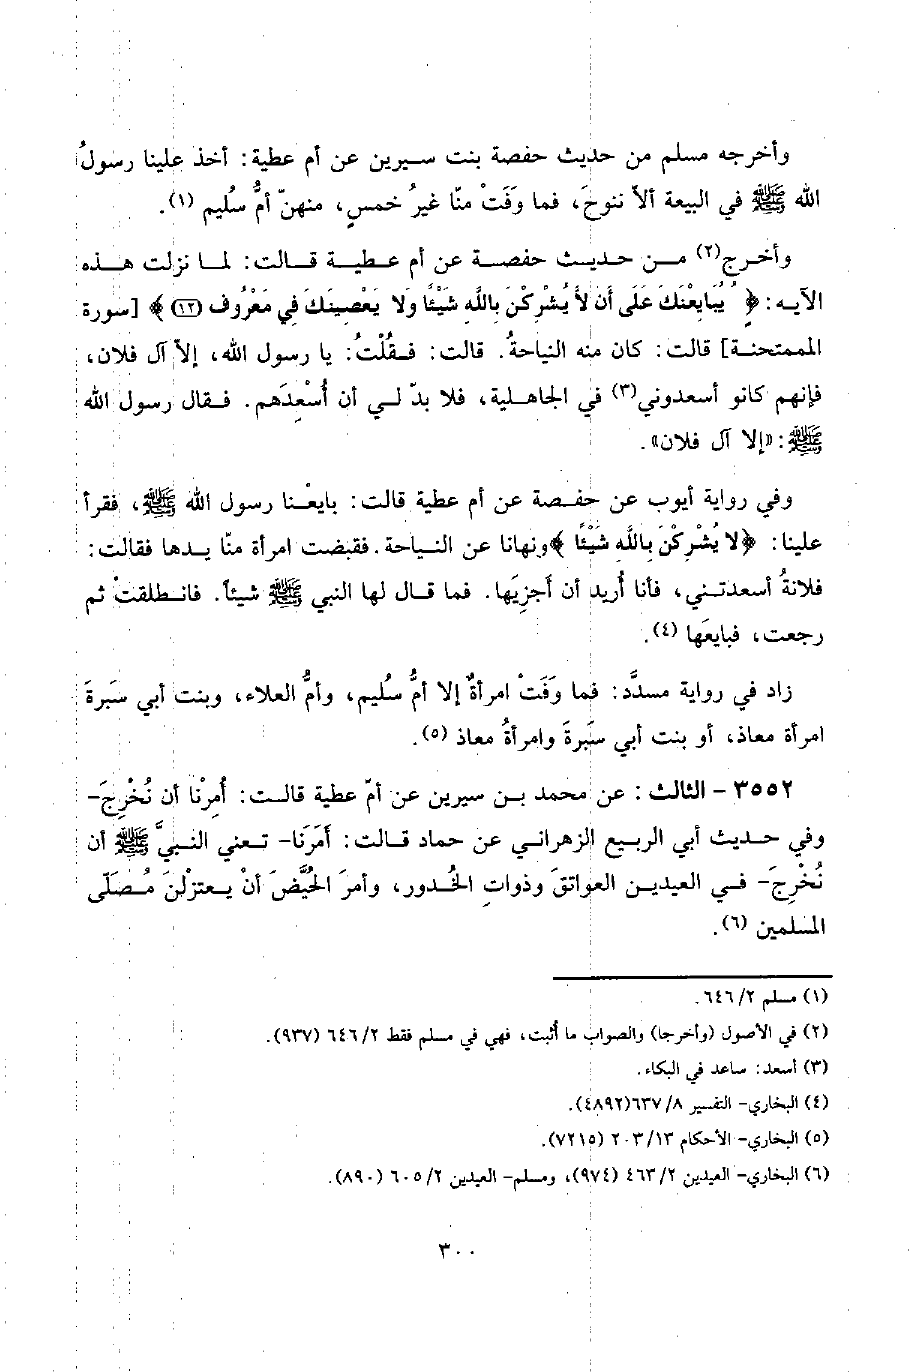 وأخرجه مسلم من حديث حفصة بنت سيرين عن أم عطية: أخذ علينا رسولُ
الله ﷺ في البيعة ألاّ ننوحَ، فما وَفَتْ منّا غيرُ خمسٍ، منهنّ أمُّ سُليم (١).
وأخرج(٢) من حديث حفصة عن أم عطية قالت: لما نزلت هذه
الآيه: ﴿ يُبَايِعْنَكَ عَلَى أَن لاَّ يُشْرِكْنَ بِاللَّهِ شَيْئًا وَلا يَعْصِينَكَ فِي مَعْرُوفٍ (١٢) ﴾ [سورة
الممتحنة] قالت: كان منه النياحةُ. قالت: فقُلْتُ: يا رسول الله، إلاّ آل فلان،
فإنهم كانو أسعدوني(٣) في الجاهلية، فلا بدّ لي أن أُسْعِدَهم. فقال رسول الله
ﷺ: «إلا آل فلان».
وفي رواية أيوب عن حفصة عن أم عطية قالت: بايعْنا رسول الله ﷺ، فقرأ
علينا: ﴿لا يُشْرِكْنَ بِاللَّهِ شَيْئًا ﴾ونهانا عن النياحة. فقبضت امرأة منّا يدها فقالت:
فلانةُ أسعدتني، فأنا أُريد أن أجزِيَها. فما قال لها النبي ﷺ شيئاً. فانطلقتْ ثم
رجعت، فبايعَها (٤).
زاد في رواية مسدَّد: فما وَفَتْ امرأةٌ إلا أمُّ سُليم، وأمُّ العلاء، وبنت أبي سَبرةَ
امرأة معاذ، أو بنت أبي سَبرةَ وامرأةُ معاذ (٥).
٣٥٥٢ - الثالث : عن محمد بن سيرين عن أمّ عطية قالت: أُمِرْنا أن نُخْرِجَ-
وفي حديث أبي الربيع الزهراني عن حماد قالت: أَمَرَنَا- تعني النبيَّ ﷺ أن
نُخْرِجَ- في العيدين العواتقَ وذواتِ الخُدور، وأمرَ الحُيَّضَ أنْ يعتزلْنَ مُصَلّى
المسلمين (٦).
(١) مسلم ٦٤٦/٢.
(٢) في الأصول (وأخرجا) والصواب ما أُثبت، فهي في مسلم فقط ٦٤٦/٢ (٩٣٧).
(٣) أسعد: ساعد في البكاء.
(٤) البخاري- التفسير ٦٣٧/٨(٤٨٩٢).
(٥) البخاري- الأحكام ٢٠٣/١٣ (٧٢١٥).
(٦) البخاري- العيدين ٤٦٣/٢ (٩٧٤)، ومسلم- العيدين ٦٠٥/٢ (٨٩٠).
٣٠٠